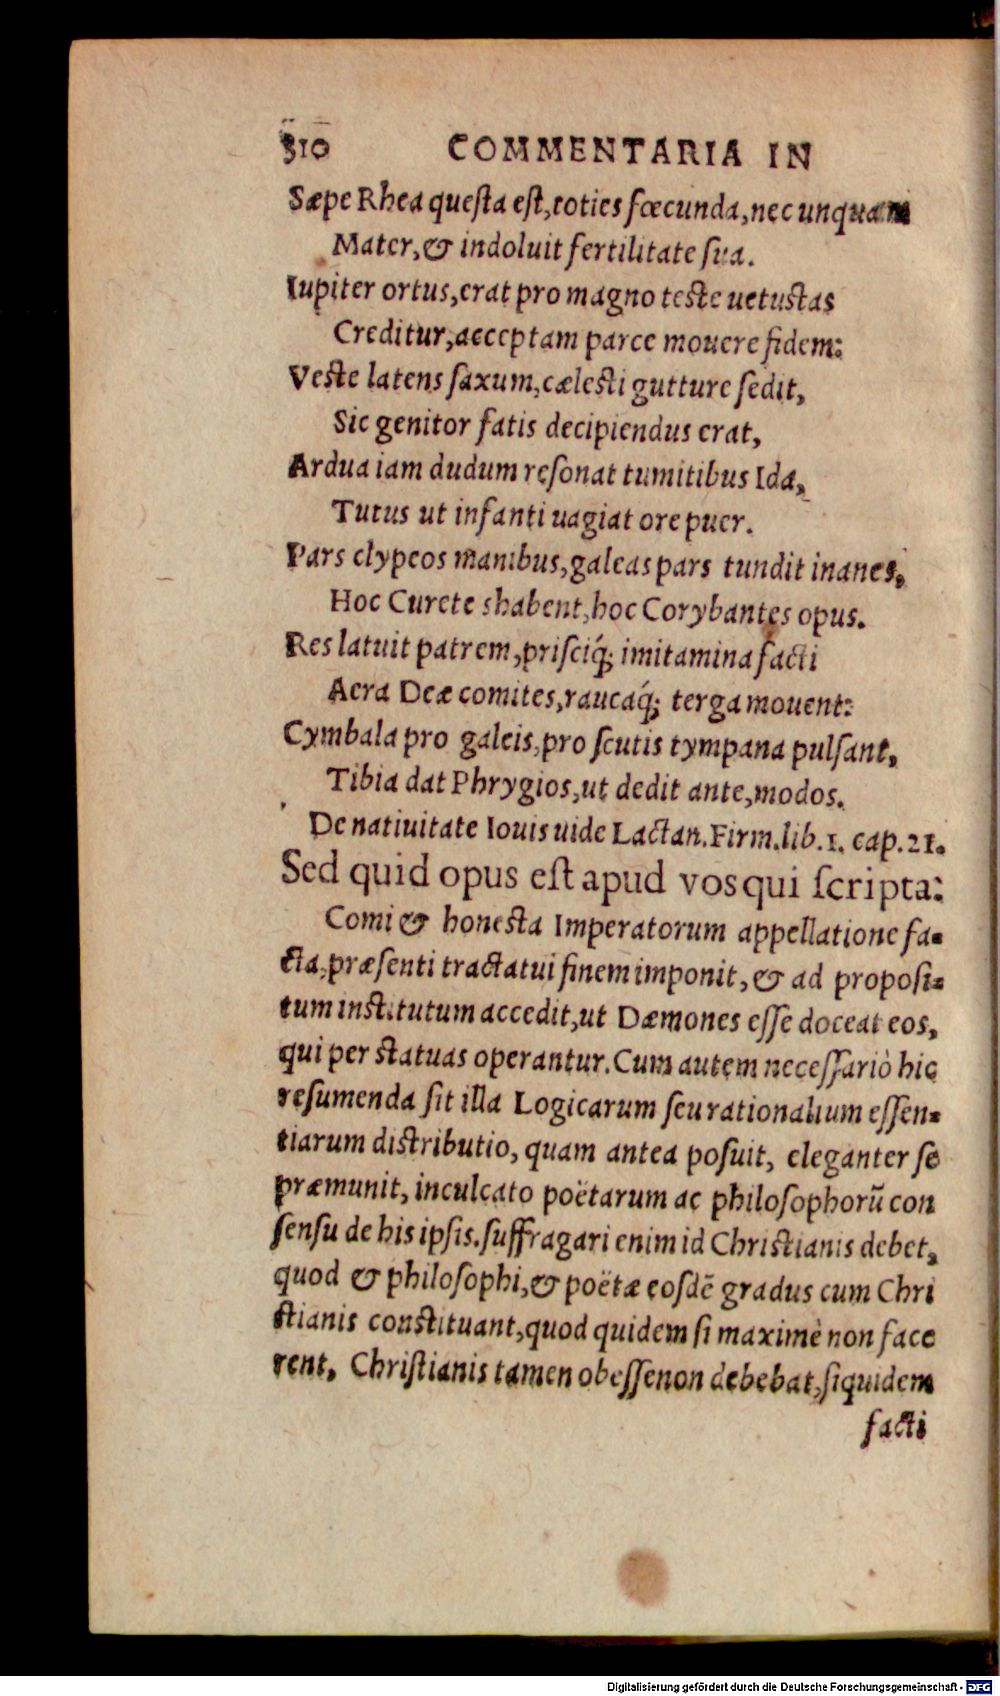 310 COMMENTARIA IN
Sæpe Rhea questa est, toties fœcunda, nec unquam
Mater, & indoluit fertilitate sua.
Iupiter ortus, erat pro magno teste uetustas
Creditur, acceptam parce mouere fidem:
Veste latens saxum, cælesti gutture sedit,
Sic genitor fatis decipiendus erat,
Ardua iam dudum resonat tumitibus Ida,
Tutus ut infanti uagiat ore puer.
Pars clypeos manibus, galeas pars tundit inanes,
Hoc Curete shabent, hoc Corybantes opus.
Res latuit patrem, prisciq́; imitamina facti
Aera Deæ comites, raucaq́; terga mouent:
Cymbala pro galeis, pro scutis tympana pulsant,
Tibia dat Phrygios, ut dedit ante, modos.
De natiuitate Iouis uide Lactan. Firm. lib. 1. cap. 21.
Sed quid opus est apud vos qui scripta:
Comi & honesta Imperatorum appellatione fa-
cta, præsenti tractatui finem imponit, & ad proposi-
tum institutum accedit, ut Dæmones esse doceat eos,
qui per statuas operantur. Cum autem necessariò hic
resumenda sit illa Logicarum seu rationalium essen-
tiarum distributio, quam antea posuit, eleganter se
præmunit, inculcato poëtarum ac philosophorũ con
sensu de his ipsis. suffragari enim id Christianis debet,
quod & philosophi, & poëtæ eosdẽ gradus cum Chri
stianis constituant, quod quidem si maximè non face
rent, Christianis tamen obesse non debebat, siquidem
facti
Digitalisierung gefördert durch die Deutsche Forschungsgemeinschaft - DFG